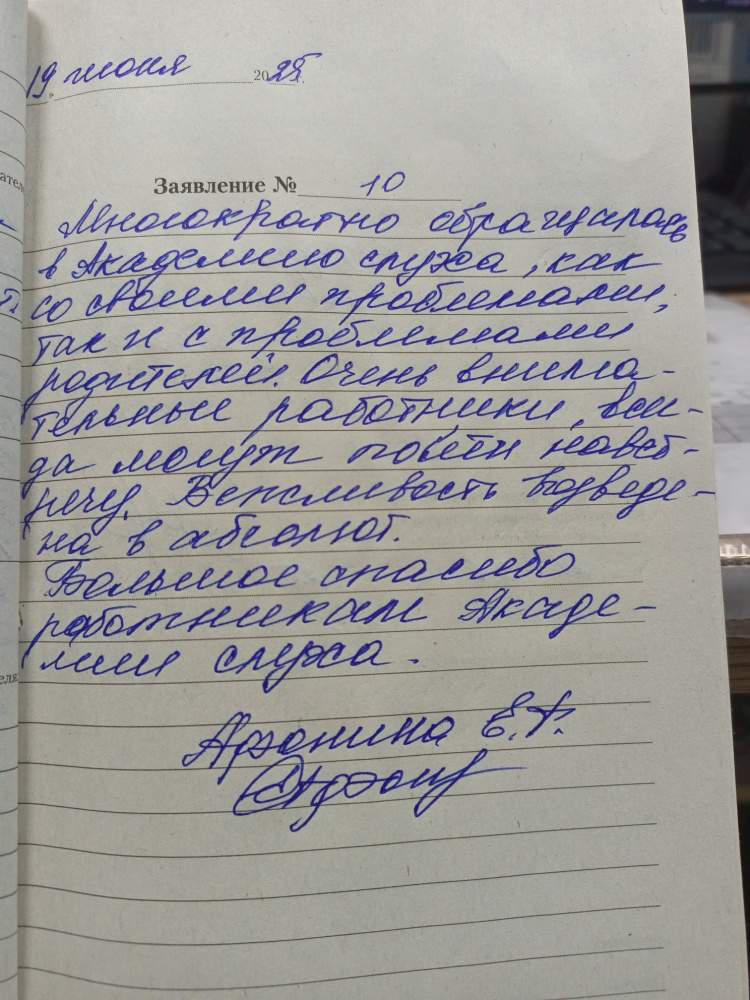 19 июня 2025 г.
Заявление № 10
Многократно обращалась
в Академию слуха, как
со своими проблемами,
так и с проблемами
родителей. Очень внима-
тельные работники, всег-
да могут пойти навст-
речу. Вежливость возведе-
на в абсолют.
Большое спасибо
работникам Акаде-
мии слуха.
Е.